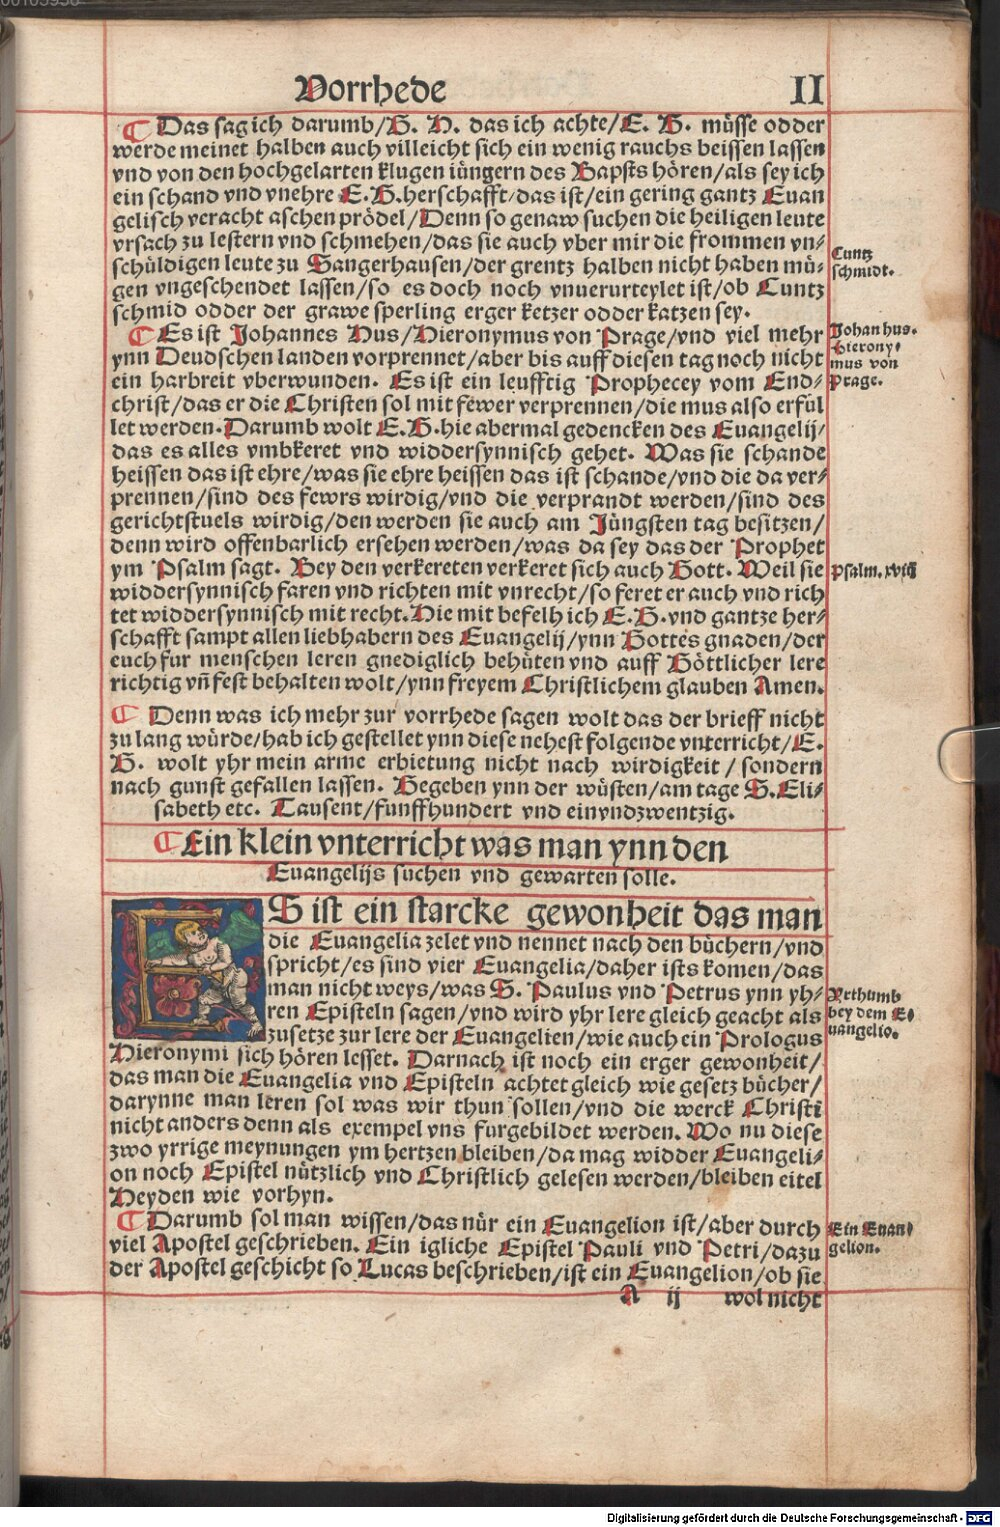 Vorrhede II
¶ Das sag ich darumb/G. H. das ich achte/E. G. müsse odder
werde meinet halben auch villeicht sich ein wenig rauchs beissen lassen
vnd von den hochgelarten klugen iüngern des Bapsts hören/als sey ich
ein schand vnd vnehre E.G.herschafft/das ist/ein gering gantz Euan
gelisch veracht aschen prödel/Denn so genaw suchen die heiligen leute
vrsach zu lestern vnd schmehen/das sie auch vber mir die frommen vn⸗
schüldigen leute zu Sangerhausen/der grentz halben nicht haben mü⸗
gen vngeschendet lassen/so es doch noch vnuerurteylet ist/ob Cuntz
schmid odder der grawe sperling erger ketzer odder katzen sey.
Cuntz
schmidt.
¶ Es ist Johannes Hus/Hieronymus von Prage/vnd viel mehr
ynn Deudschen landen vorprennet/aber bis auff diesen tag noch nicht
ein harbreit vberwunden. Es ist ein leufftig Prophecey vom End⸗
christ/das er die Christen sol mit fewer verprennen/die mus also erfül
let werden. Darumb wolt E.G.hie abermal gedencken des Euangelij/
das es alles vmbkeret vnd widdersynnisch gehet. Was sie schande
heissen das ist ehre/was sie ehre heissen das ist schande/vnd die da ver⸗
prennen/sind des fewrs wirdig/vnd die verprandt werden/sind des
gerichtstuels wirdig/den werden sie auch am Jüngsten tag besitzen/
denn wird offenbarlich ersehen werden/was da sey das der Prophet
ym Psalm sagt. Bey den verkereten verkeret sich auch Gott. Weil sie
widdersynnisch faren vnd richten mit vnrecht/so feret er auch vnd rich
tet widdersynnisch mit recht. Hie mit befelh ich E.G.vnd gantze her⸗
schafft sampt allen liebhabern des Euangelij/ynn Gottes gnaden/der
euch fur menschen leren gnediglich behüten vnd auff Göttlicher lere
richtig vñ fest behalten wolt/ynn freyem Christlichem glauben Amen.
Johan hus.
Hierony⸗
mus von
Prage.
Psalm. xviij
¶ Denn was ich mehr zur vorrhede sagen wolt das der brieff nicht
zu lang würde/hab ich gestellet ynn diese nehest folgende vnterricht/E.
G. wolt yhr mein arme erbietung nicht nach wirdigkeit/sondern
nach gunst gefallen lassen. Gegeben ynn der wüsten/am tage S.Eli⸗
sabeth etc. Tausent/funffhundert vnd einvndzwentzig.
¶ Ein klein vnterricht was man ynn den
Euangelijs suchen vnd gewarten solle.
ES ist ein starcke gewonheit das man
die Euangelia zelet vnd nennet nach den büchern/vnd
spricht/es sind vier Euangelia/daher ists komen/das
man nicht weys/was S. Paulus vnd Petrus ynn yh⸗
ren Episteln sagen/vnd wird yhr lere gleich geacht als
zusetze zur lere der Euangelien/wie auch ein Prologus
Hieronymi sich hören lesset. Darnach ist noch ein erger gewonheit/
das man die Euangelia vnd Episteln achtet gleich wie gesetz bücher/
darynne man leren sol was wir thun sollen/vnd die werck Christi
nicht anders denn als exempel vns furgebildet werden. Wo nu diese
zwo yrrige meynungen ym hertzen bleiben/da mag widder Euangeli⸗
on noch Epistel nützlich vnd Christlich gelesen werden/bleiben eitel
Heyden wie vorhyn.
Yrthumb
bey dem E⸗
uangelio.
¶ Darumb sol man wissen/das nür ein Euangelion ist/aber durch
viel Apostel geschrieben. Ein igliche Epistel Pauli vnd Petri/dazu
der Apostel geschicht so Lucas beschrieben/ist ein Euangelion/ob sie
Ein Euan⸗
gelion.
A ij wol nicht
Digitalisierung gefördert durch die Deutsche Forschungsgemeinschaft - DFG